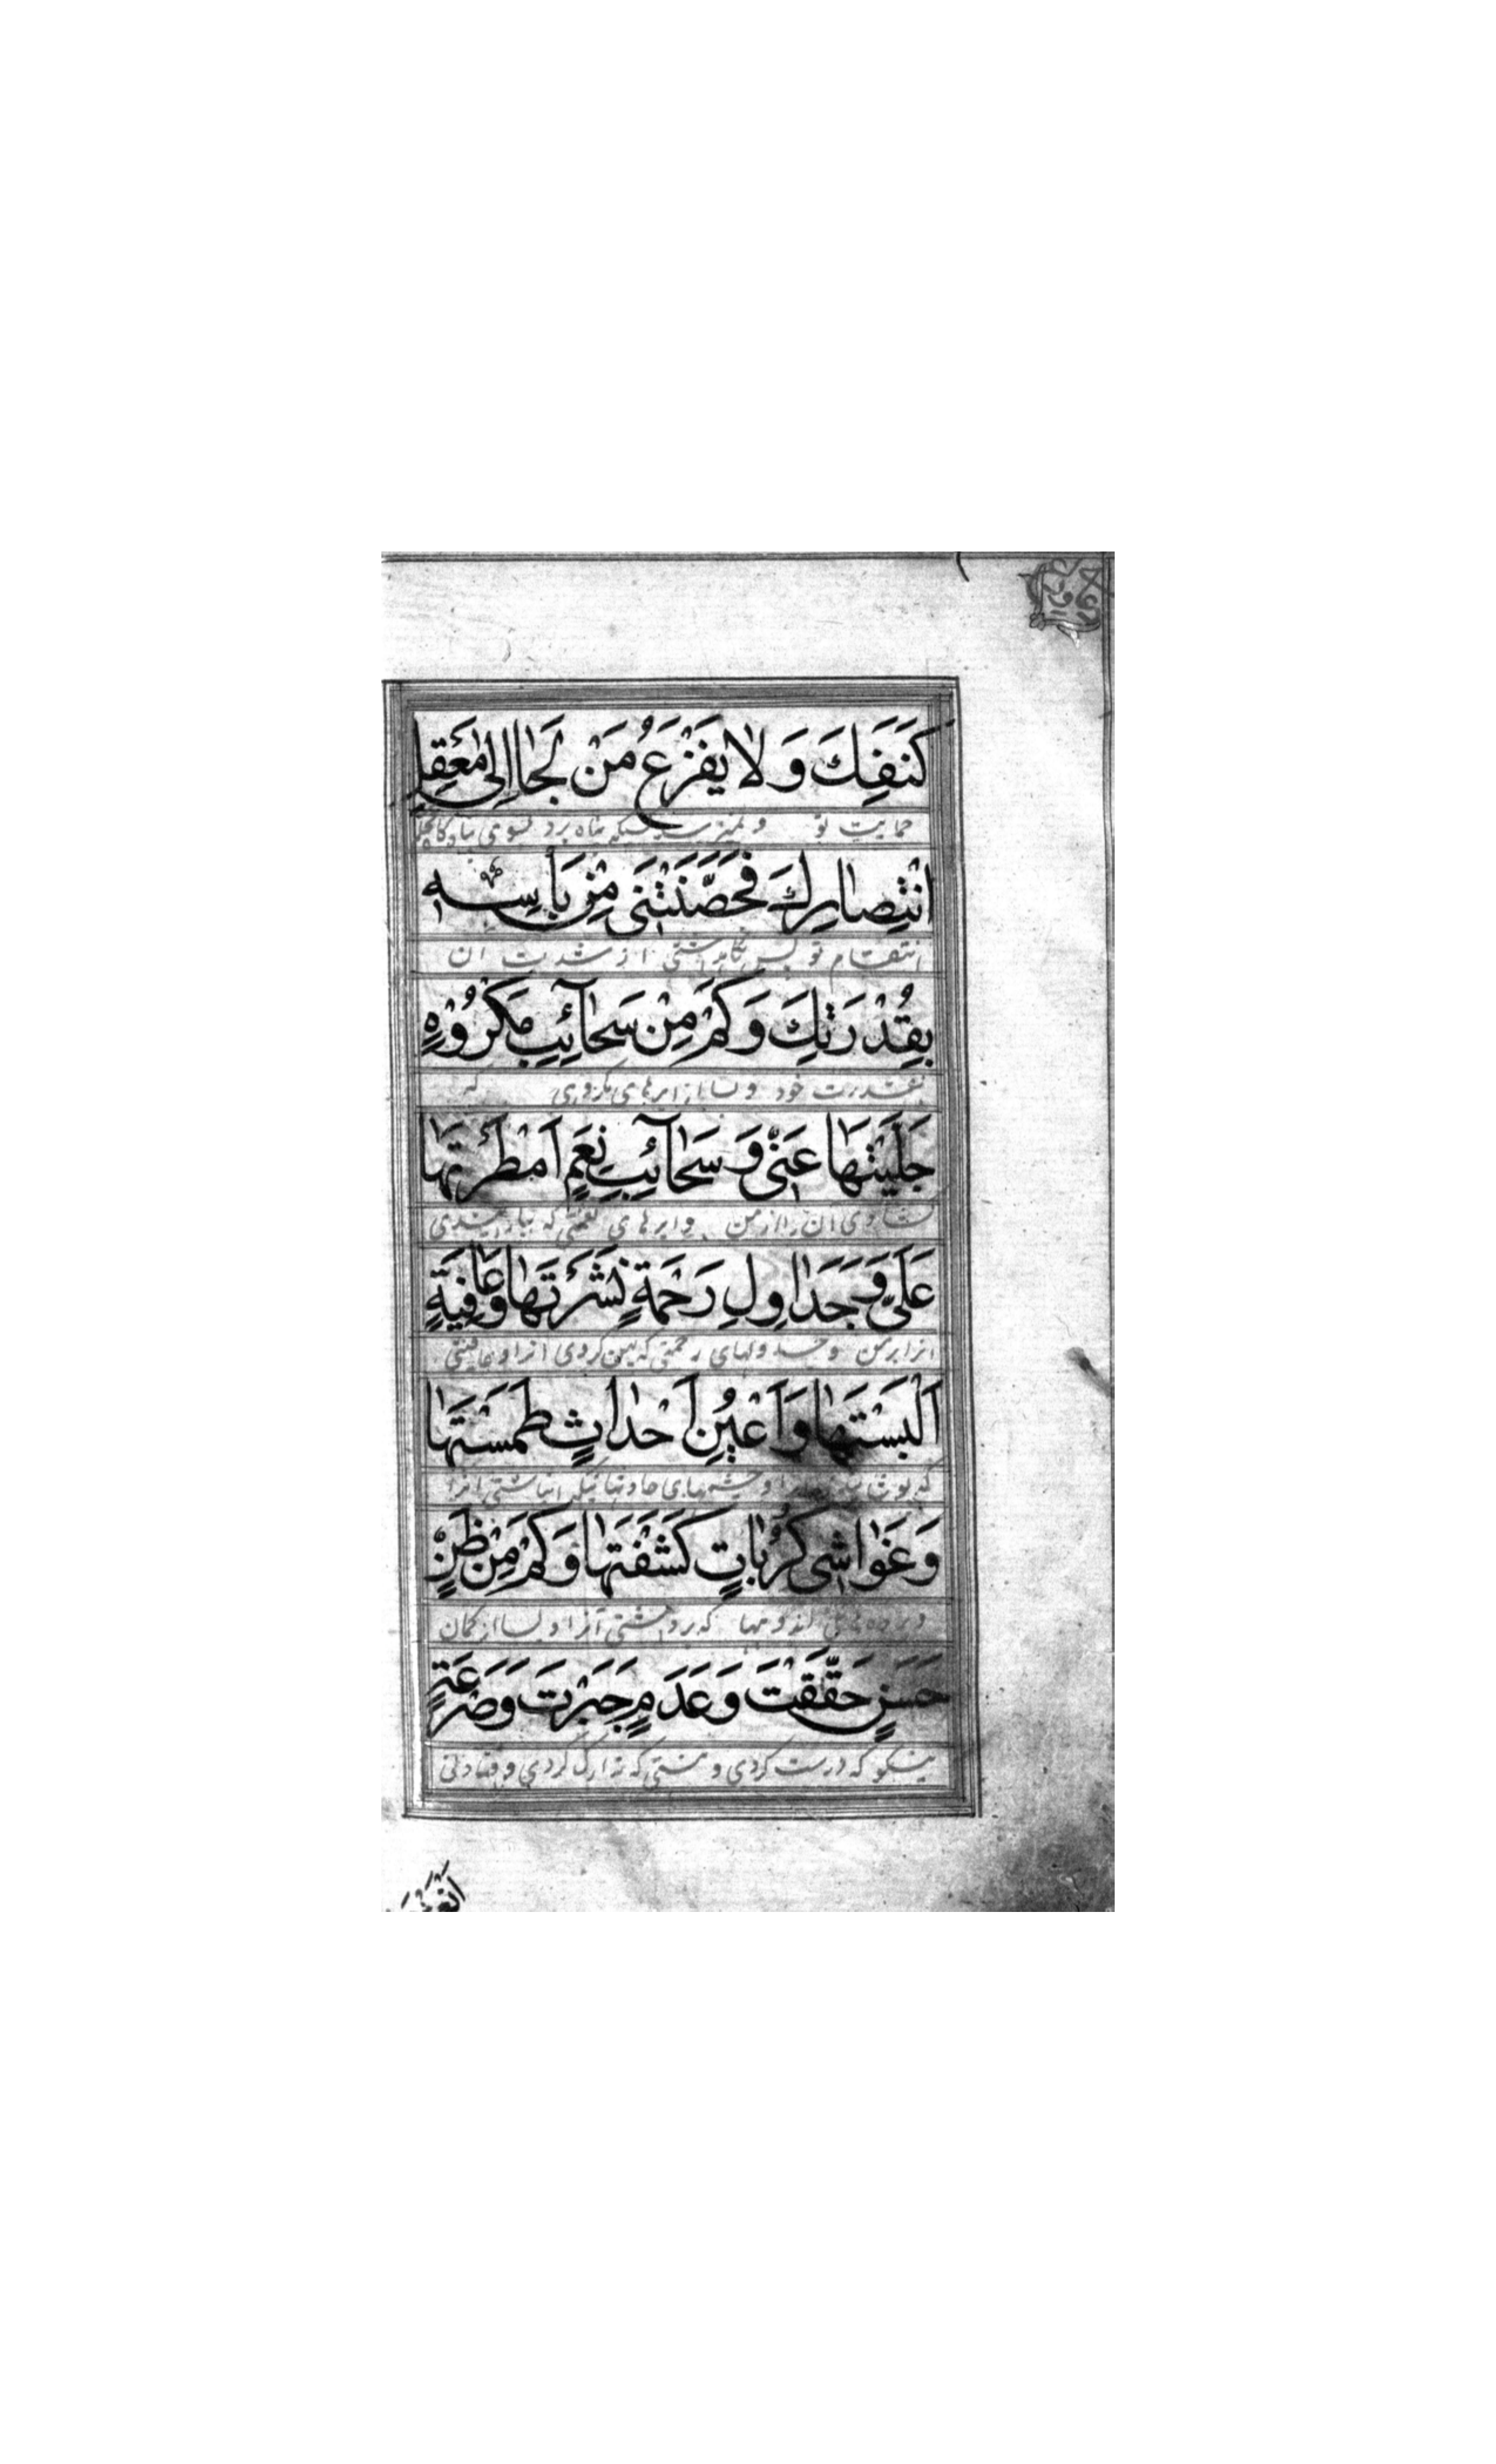 كَنَفِكَ وَلَا يَفْزَعُ مَنْ لَجَأَ إِلىٰ مَعْقِلِ
حمایت تو و نمیترسد کسیکه پناه برد بسوی پناه‌گاه
انْتِصَارِكَ فَحَصَّنْتَنِی مِنْ بَأْسِهِ
انتقام تو پس نگاهداشتی از شدت آن
بِقُدْرَتِكَ وَكَمْ مِنْ سَحَائِبِ مَكْرُوهٍ
بقدرت خود و بسا از ابرهای مکروهی که
جَلَّیْتَهَا عَنِّی وَ سَحَائِبِ نِعَمٍ اَمْطَرْتَهَا
آن را از من و ابرهای نعمتی که بارانیدی
عَلَیَّ وَجَدَاوِلِ رَحْمَةٍ نَشَرْتَهَا وَعَافِيَةٍ
انرا بر من و جدولهای رحمتی که پهن کردی انرا و عافیتی
اَلْبَسْتَهَا وَاَعْيُنِ اَحْدَاثٍ طَمَسْتَهَا
که و چشمهای حادثها که انباشتی انرا
وَغَوَاشِی كُرُبَاتٍ كَشَفْتَهَا وَكَمْ مِنْ ظَنٍّ
و اندوهها که برداشتی آنرا و بسا از گمان
حَسَنٍ حَقَّقْتَ وَعَدَمٍ جَبَرْتَ وَصَرْعَةٍ
نیکو که درست کردی و که تدارک کردی و